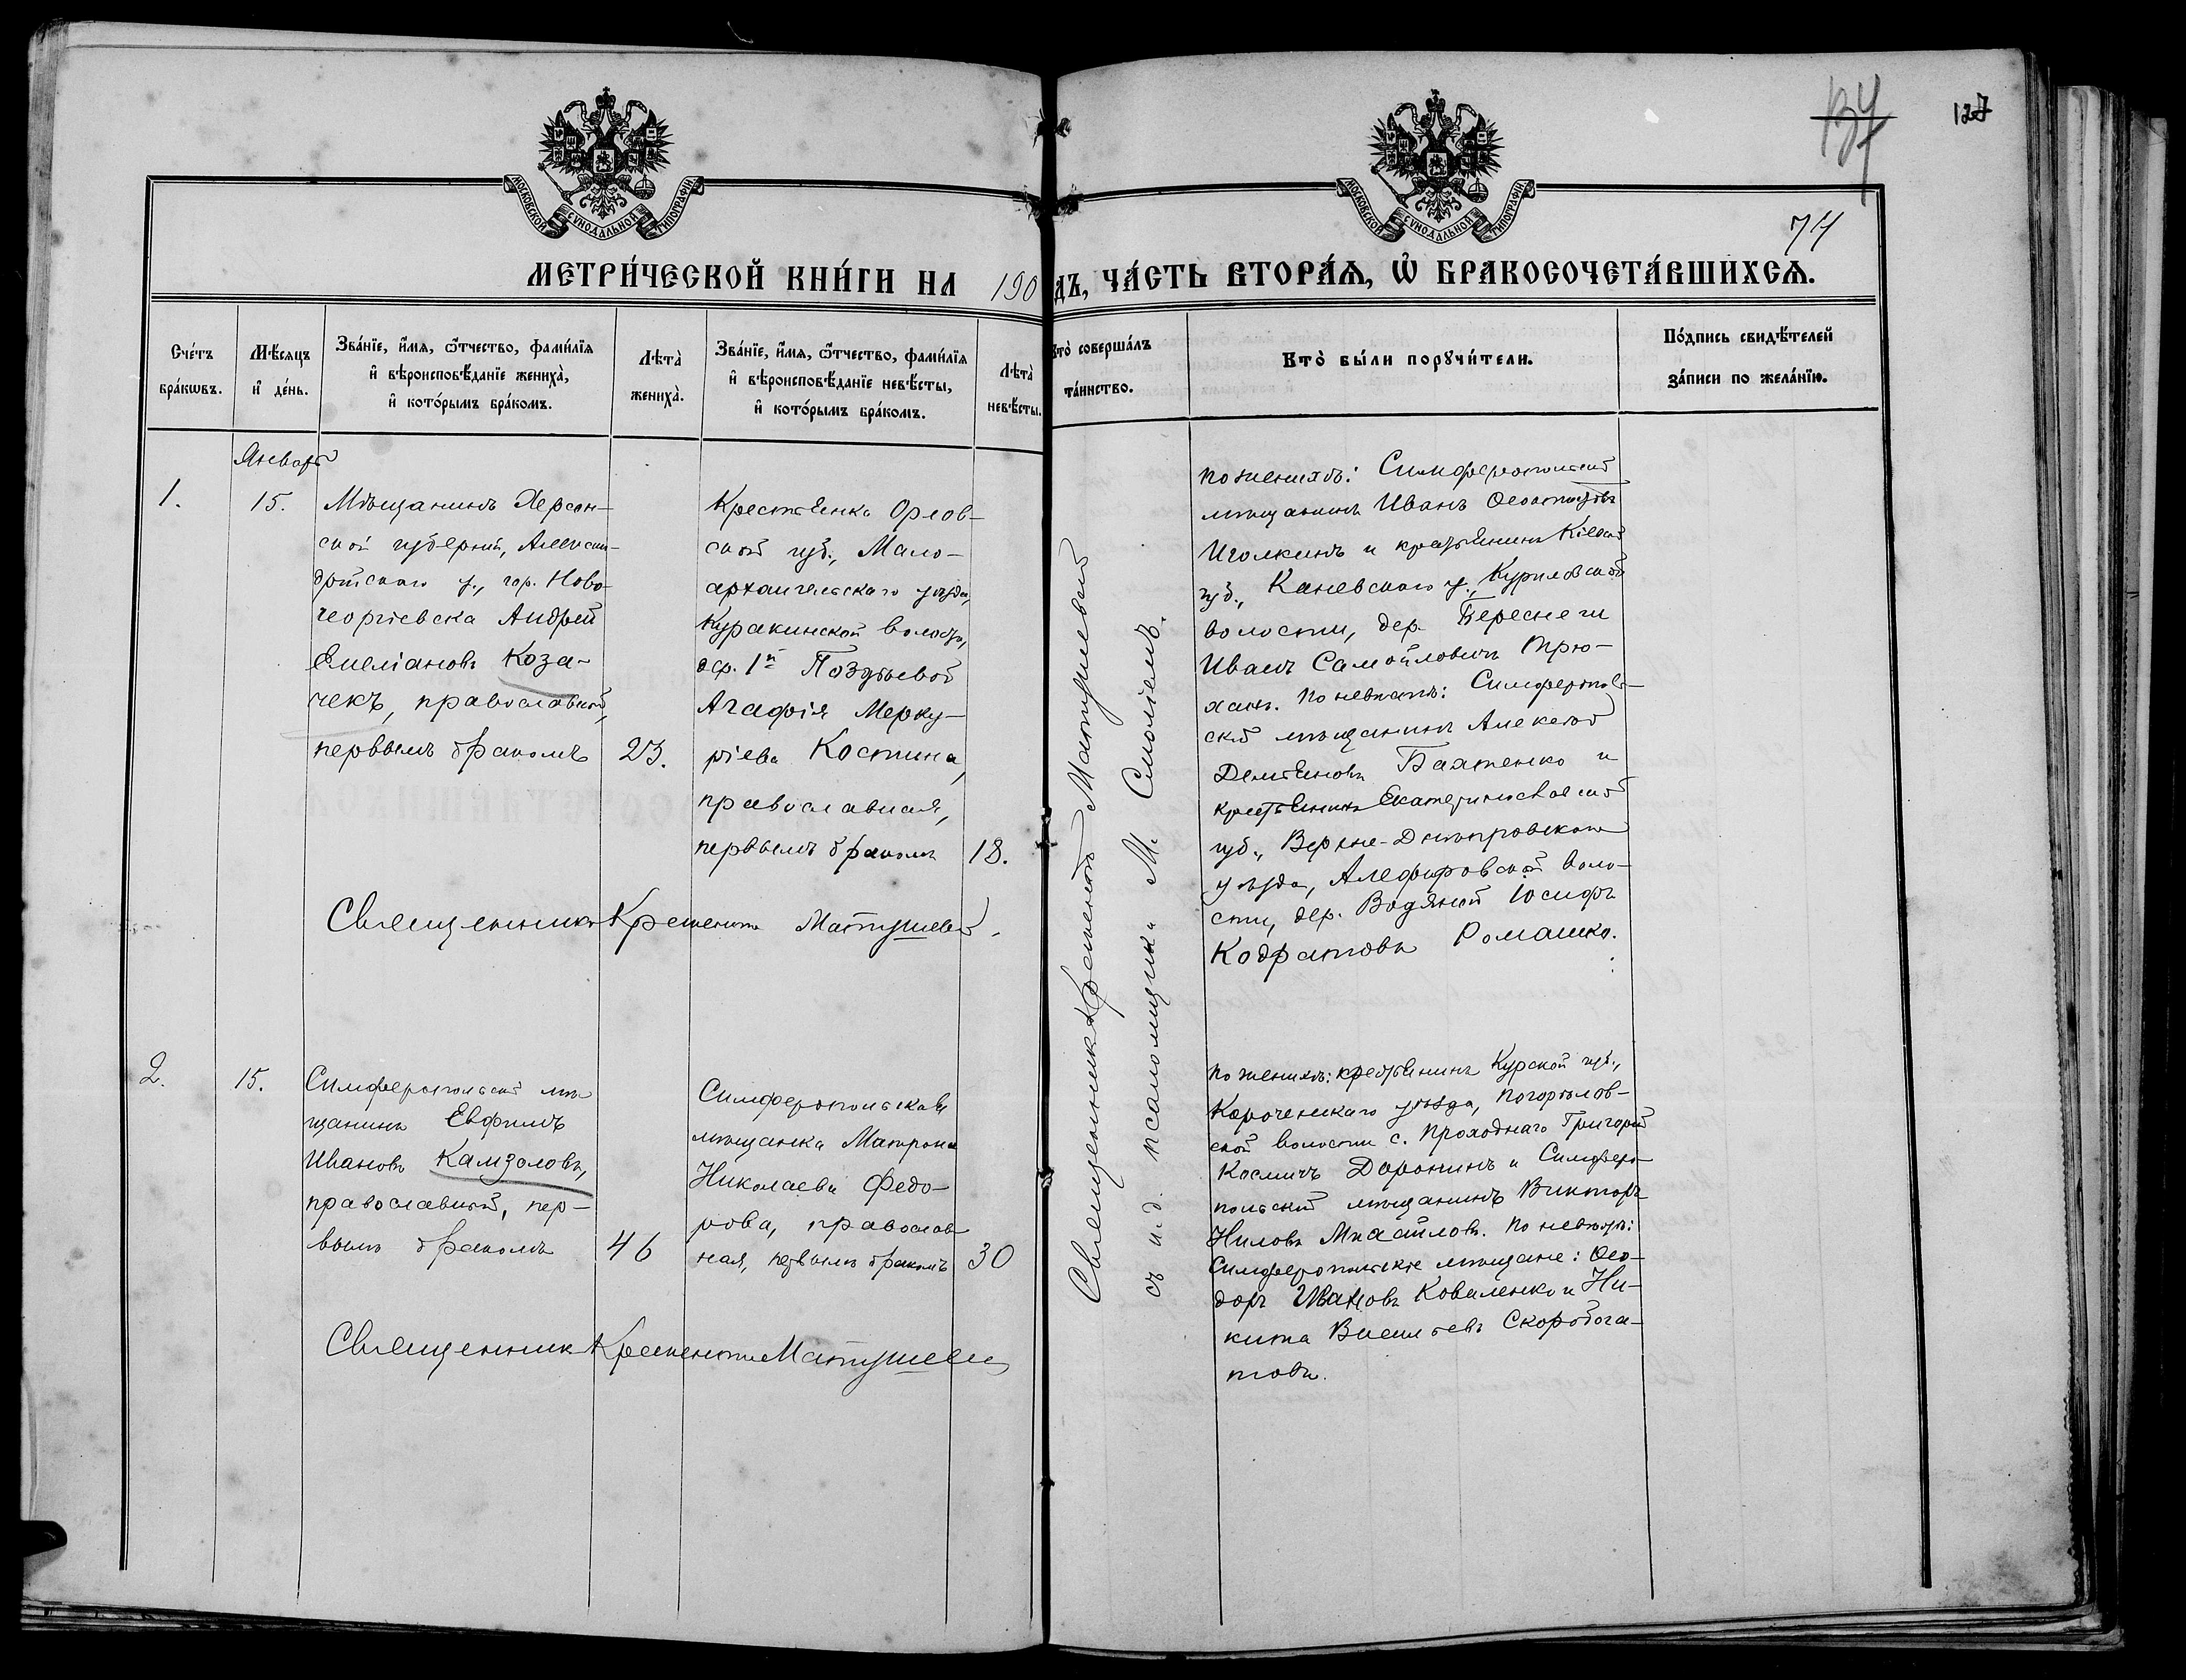 127
74
МОСКОВСКОЙ СУНОДАЛЬНОЙ ТИПОГРАФІИ
МОСКОВСКОЙ СУНОДАЛЬНОЙ ТИПОГРАФІИ
МЕТРИ́ЧЕСКОЙ КНИ́ГИ НА 190
ДЪ, ЧА́СТЬ ВТОРА́Ѧ, Ѽ БРАКОСОЧЕТА́ВШИХСѦ.
Сче́тъ
бра́кѡвъ.
Мѣ́сяцъ
и҆ де́нь.
Зва́нїе, и҆́мѧ, ѻ҆́тчество, фами́лїѧ
и҆ вѣроисповѣ́данїе жениха̀,
и҆ кото́рымъ бра́комъ.
Лѣта̀
жениха̀.
Зва́нїе, и҆́мѧ, ѻ҆́тчество, фами́лїѧ
и҆ вѣроисповѣ́данїе невѣ́сты,
и҆ кото́рымъ бра́комъ.
Лѣта̀
невѣ́сты.
Кто̀ соверша́лъ
та́инство.
Кто̀ бы́ли порꙋчи́тели.
По́дпись свидѣ́телей
за́писи по жела́нїю.
Январь
1.
15.
Мѣщанинъ Херсон-
ской губерніи, Алексан-
дрійскаго у., гор. Ново-
георгіевска Андрей
Емеліановъ Коза-
чекъ, православный,
первымъ бракомъ
23.
Крестьянка Орлов-
ской губ., Мало-
архангельскаго уѣзда,
Куракинской волости,
дер. 1й Поздѣевой
Агафія Мерку-
ріева Костина,
православная,
первымъ бракомъ
18.
Священникъ Крискентъ Матушевскій.
Священникъ Крискентъ Матушевскій
съ и.д. псаломщика М. Смоліемъ.
по женихѣ: Симферопольскій
мѣщанинъ Иванъ Ѳеоктистовъ
Иголкинъ и крестьянинъ Кіевской
губ., Каневскаго у., Куриловской
волости, дер. Береснеги
Иванъ Самойловичъ Трю-
ханъ. По невѣстѣ: Симферополь-
скій мѣщанинъ Алексѣй
Демьяновъ Бахтенко и
крестьянинъ Екатеринославской
губ., Верхне-Днѣпровскаго
уѣзда, Алеферовской воло-
сти, дер. Водяной Іосифъ
Кодратовъ Ромашко.
2.
15.
Симферопольскій мѣ-
щанинъ Евфимъ
Ивановъ Камзоловъ,
православный, пер-
вымъ бракомъ
46
Симферопольская
мѣщанка Матрона
Николаева Федо-
рова, православ-
ная, первымъ бракомъ
30
Священникъ Крискентъ Матушевскій
по женихѣ: крестьянинъ Курской губ.,
Корочанскаго уѣзда, Погорѣлов-
ской волости с. Проходнаго Григорій
Космичъ Доронинъ и Симферо-
польскій мѣщанинъ Викторъ
Ниловъ Михайловъ. По невѣстѣ:
Симферопольскіе мѣщане: Ѳео-
доръ Ивановъ Коваленко и Ни-
кита Васильевъ Скоробога-
товъ.